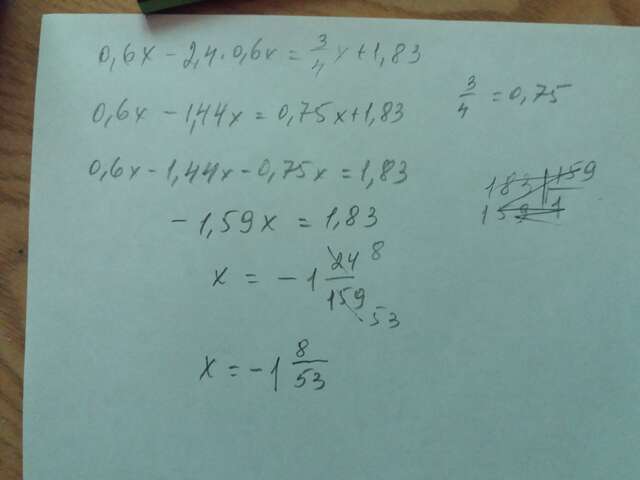 0,6x - 2,4·0,6x = 3/4 x + 1,83
3/4 = 0,75
0,6x - 1,44x = 0,75x + 1,83
0,6x - 1,44x - 0,75x = 1,83
183 159
159 1
- 1,59x = 1,83
x = - 1 24/159 8 53
x = - 1 8/53